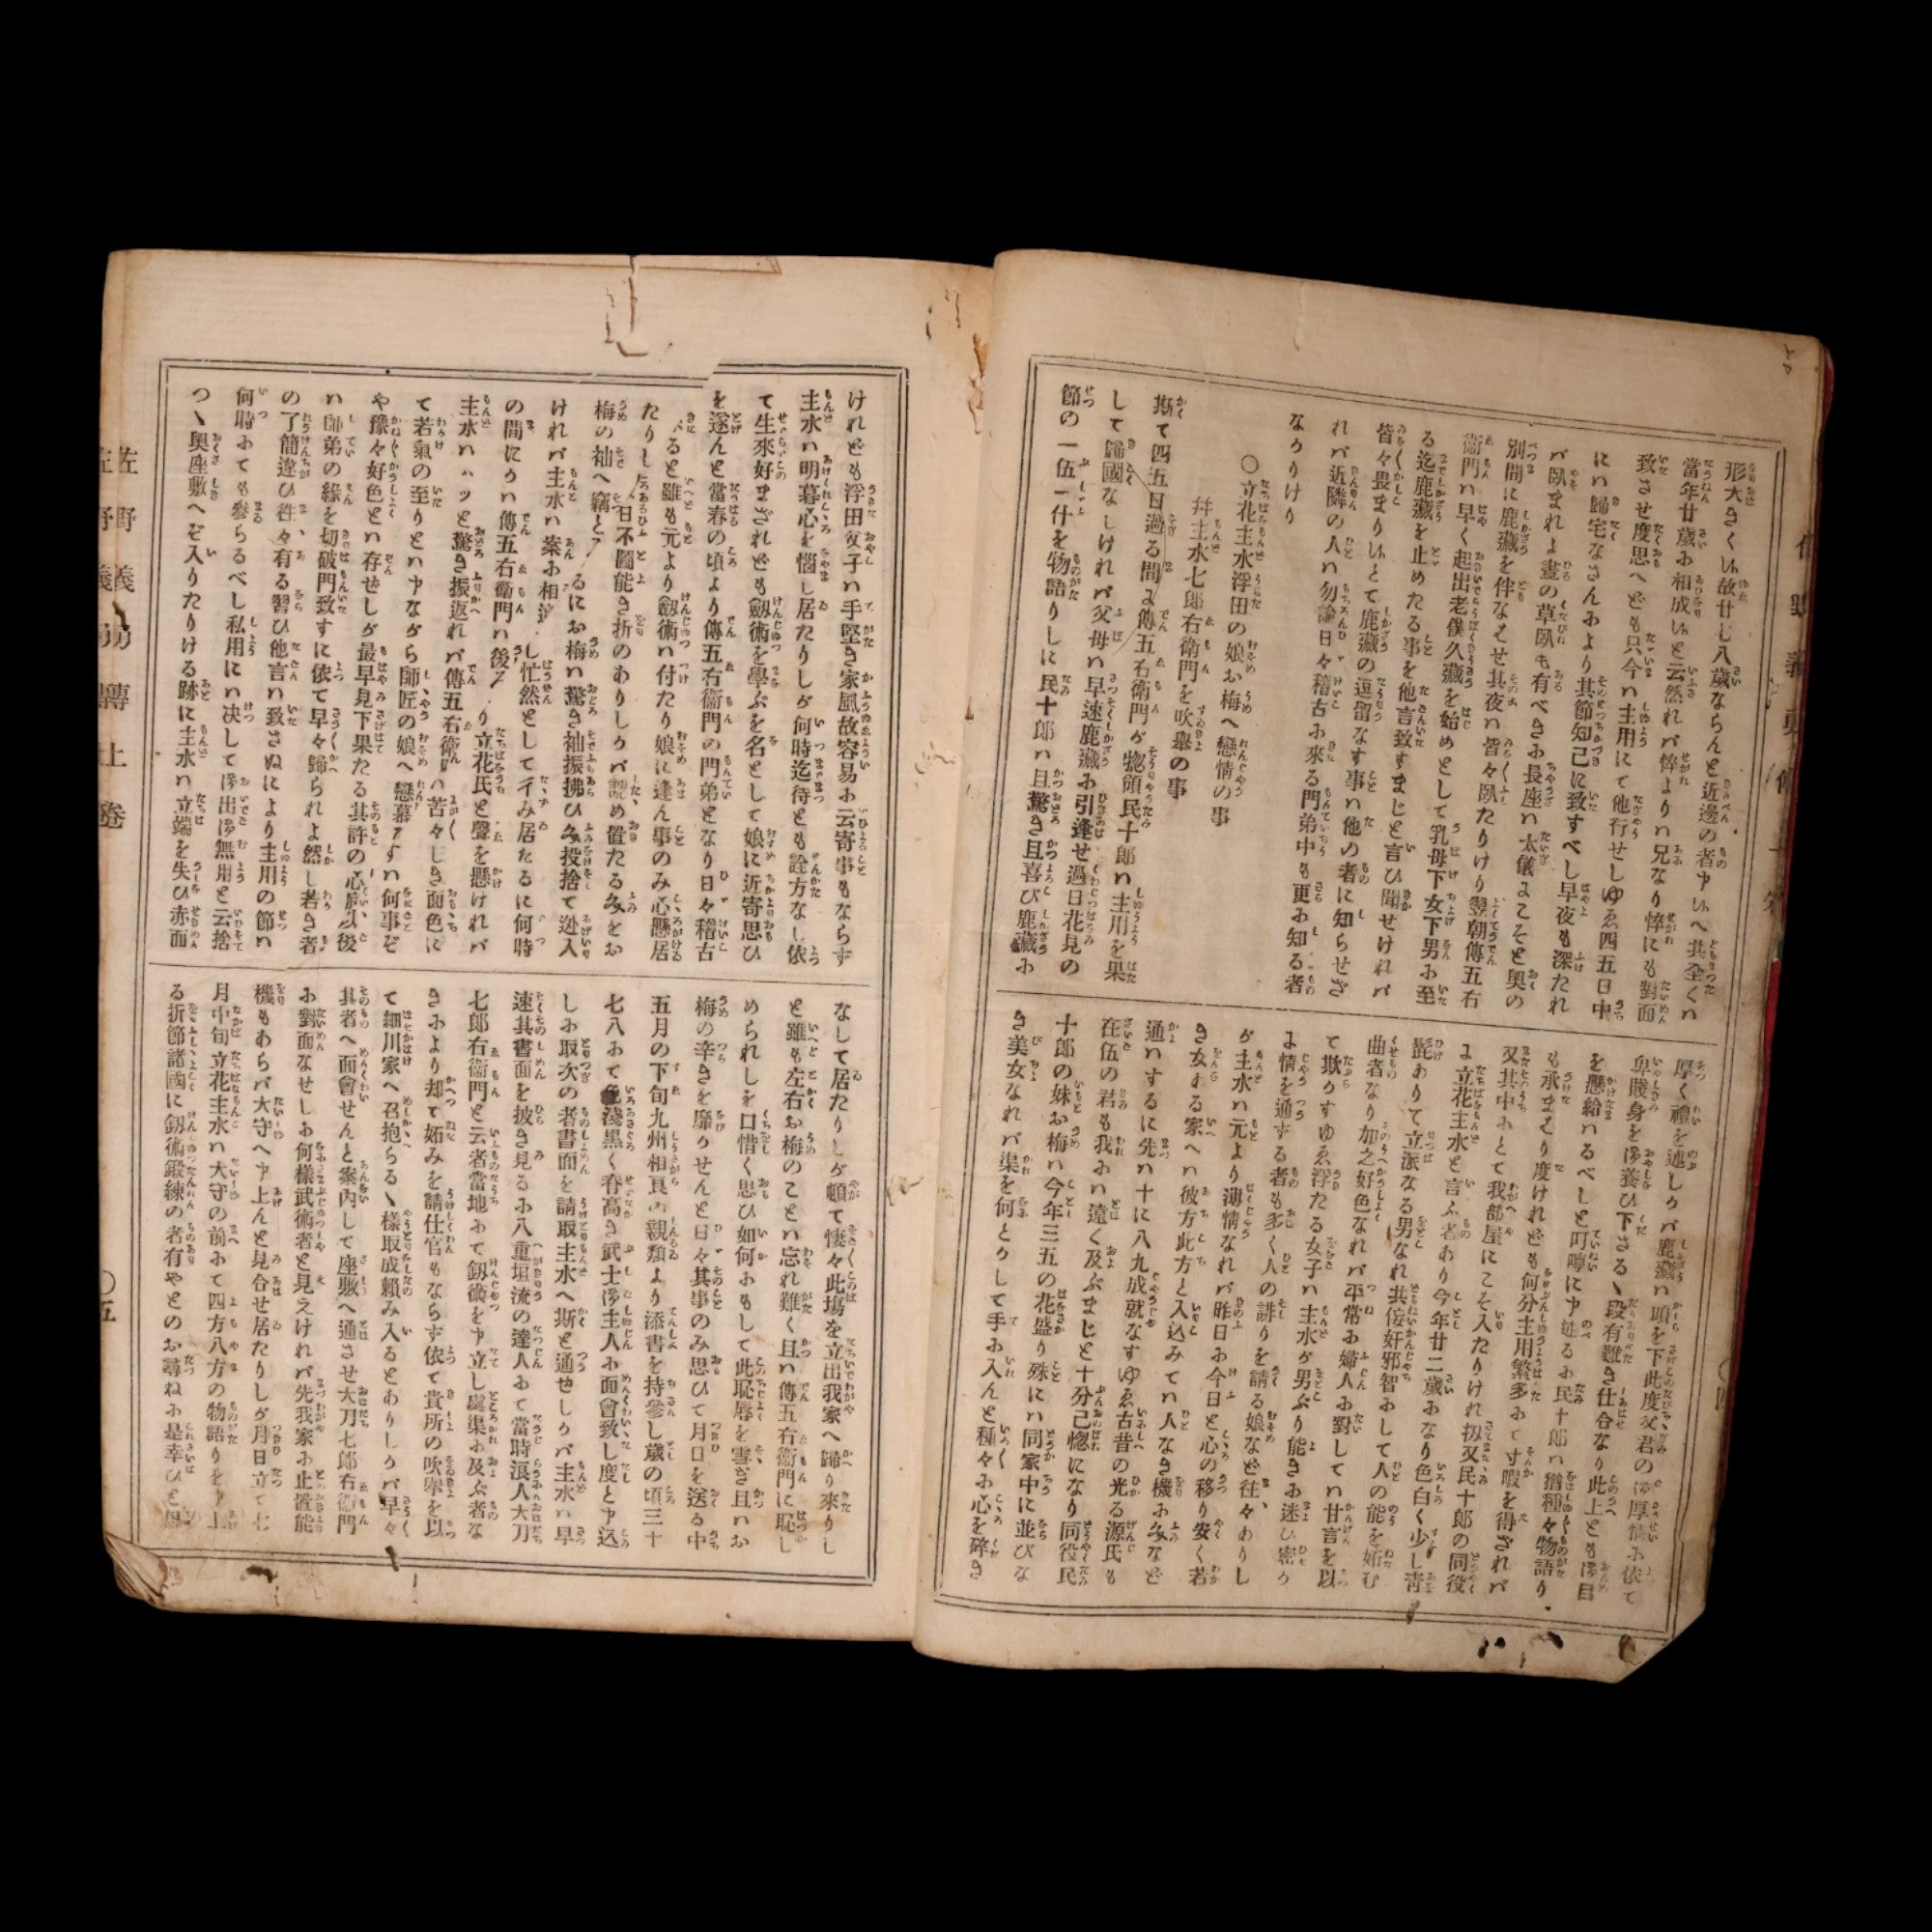 形大きく故廿七八歳ならんと近邊の者申いへ共全くハ
當年廿歳お相成いと云然れバ悴よりハ兄なり悴にも對面
致させ度思へども只今ハ主用にて他行せしゆゑ四五日中
にハ歸宅なさんおより其節知己に致すべし早夜も深たれ
バ臥まれよ晝の草臥も有べきお長座ハ太儀よこそと奥の
別間に鹿藏を伴なえせ其夜ハ皆々臥たりけり翌朝傳五右
衞門ハ早く起出老僕久藏を始めとして乳母下女下男お至
る迄鹿藏を止めたる事を他言致すまじと言ひ聞せけれバ
皆々畏まりいとて鹿藏の逗留なす事ハ他の者に知らせざ
れバ近隣の人ハ勿論日々稽古お來る門弟中も更お知る者
なかりけり
○立花主水浮田の娘お梅へ戀情の事
并主水七郎右衛門を吹擧の事
斯て四五日過る間よ傳五右衞門が惣領民十郎ハ主用を果
して歸國なしけれバ父母ハ早速鹿藏お引逢せ過日花見の
節の一伍一什を物語りしに民十郎ハ且驚き且喜び鹿藏お
厚く禮を述しかバ鹿藏ハ頭を下此度父君の御厚情お依て
卑賤身を御養ひ下さるゝ段有難き仕合なり此上とも御目
を懸給ハるべしと叮嚀に申述るお民十郎ハ猶種々物語り
も承まえり度けれども何分主用繁多おて寸暇を得ざれバ
又其中おとて我部屋にこそ入たりけれ扨又民十郎の同役
よ立花主水と言ふ者あり今年廿二歳おなり色白く少し青
髭ありて立派なる男なれ共侫奸邪智おして人の能を妬む
曲者なり加之好色なれバ平常お婦人お對してハ甘言を以
て欺かすゆゑ浮たる女子ハ主水が男ぶり能きお迷ひ密か
よ情を通ずる者も多く人の誹りを請る娘など往々ありし
が主水ハ元より薄情なれバ昨日お今日と心の移り安く若
き女ある家へハ彼方此方と入込みてハ人なき機お多など
通ハするに先ハ十に八九成就なすゆゑ古昔の光る源氏も
在伍の君も我おハ遠く及ぶまじと十分己惚になり同役民
十郎の妹お梅ハ今年三五の花盛り殊にハ同家中に並びな
き美女なれバ渠を何とかして手お入んと種々お心を碎き
けれども浮田父子ハ手堅き家風故容易お云寄事もならず
主水ハ明暮心を惱し居たりしが何時迄待とも詮方なし依
て生來好まざれども劔術を學ぶを名として娘に近寄思ひ
を遂んと當春の頃より傳五右衞門の門弟となり日々稽古
ると雖も元より劔術ハ付たり娘に逢ん事のみ心懸居
たりし 日不圖能き折のありしかバ 置たる文をお
梅の袖へ竊と るにお梅ハ驚き袖振拂ひ文投捨て迯入
けれバ主水ハ案お相 し忙然として彳み居たるに何時
の間にかハ傳五右衞門ハ後 り立花氏と聲を懸けれバ
主水ハハッと驚き振返れバ傳五右衞 ハ苦々しき面色に
て若氣の至りとハ申ながら師匠の娘へ戀慕 すハ何事ぞ
や豫々好色とハ存せしが最早見下果たる其許の心底以後
ハ師弟の縁を切破門致すに依て早々歸られよ然し若き者
の了簡違ひ往々有る習ひ他言ハ致さぬにより主用の節ハ
何時おても參らるべし私用にハ决して御出御無用と云捨
つゝ奥座敷へぞ入りたりける跡に主水ハ立端を失ひ赤面
なして居たりしが頓て悽々此塲を立出我家へ歸り來りし
と雖も左右お梅のことハ忘れ難く且ハ傳五右衞門に恥し
められしを口惜く思ひ如何おもして此恥辱を雪ぎ且ハお
梅の辛きを靡かせんと日々其事のみ思ひて月日を送る中
五月の下旬九州相良ハ親類より添書を持參し歳の頃三十
七八おて色淺黒く脊高き武士御主人お面會致し度と申込
しお取次の者書面を請取主水へ斯と通せしかバ主水ハ早
速其書面を披き見るお八重垣流の達人おて當時浪人大刀
七郎右衞門と云者當地おて劔術を申立し處渠お及ぶ者な
きおより却て妬みを請仕官もならず依て貴所の吹擧を以
て細川家へ召抱らるゝ樣取成頼み入るとありしかバ早々
其者へ面會せんと案内して座敷へ通させ大刀七郎右衞門
お對面なせしお何樣武術者と見えけれバ先我家お止置能
機もあらバ大守へ申上んと見合せ居たりしが月日立て七
月中旬立花主水ハ大守の前おて四方八方の物語りを申上
る折節諸國に劔術鍛練の者有やとのお尋ねお是幸ひと
佐野義勇傳上卷
○五